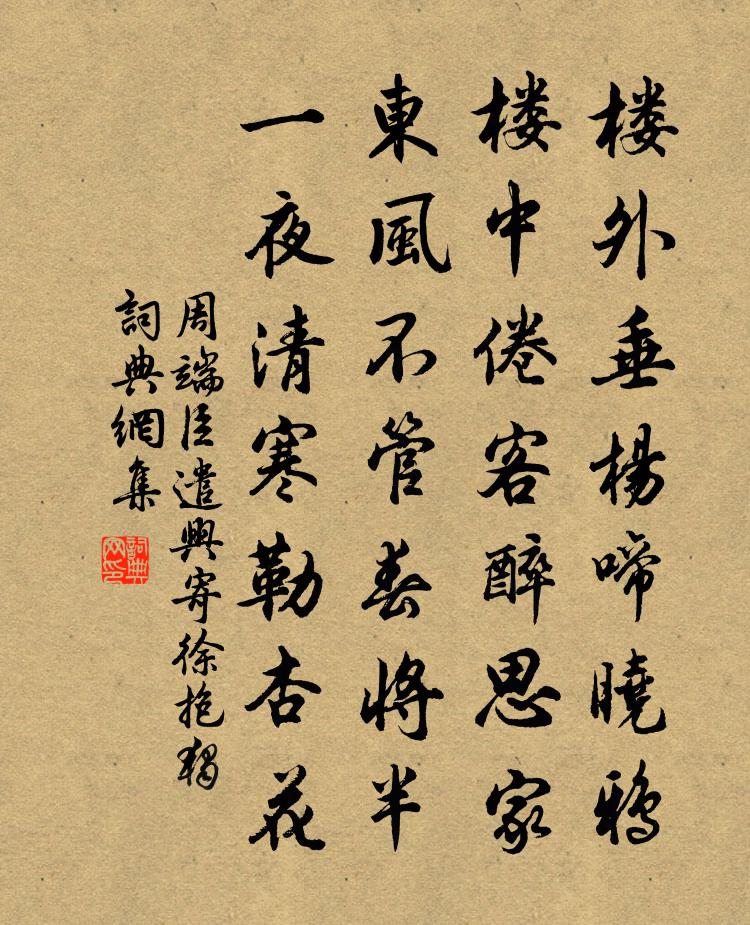 楼外垂楊啼曉鴉
楼中倦客醉思家
東風不管春將半
一夜清寒勒杏花
周端臣遣興寄徐抱獨
詞典網集
詞典網印